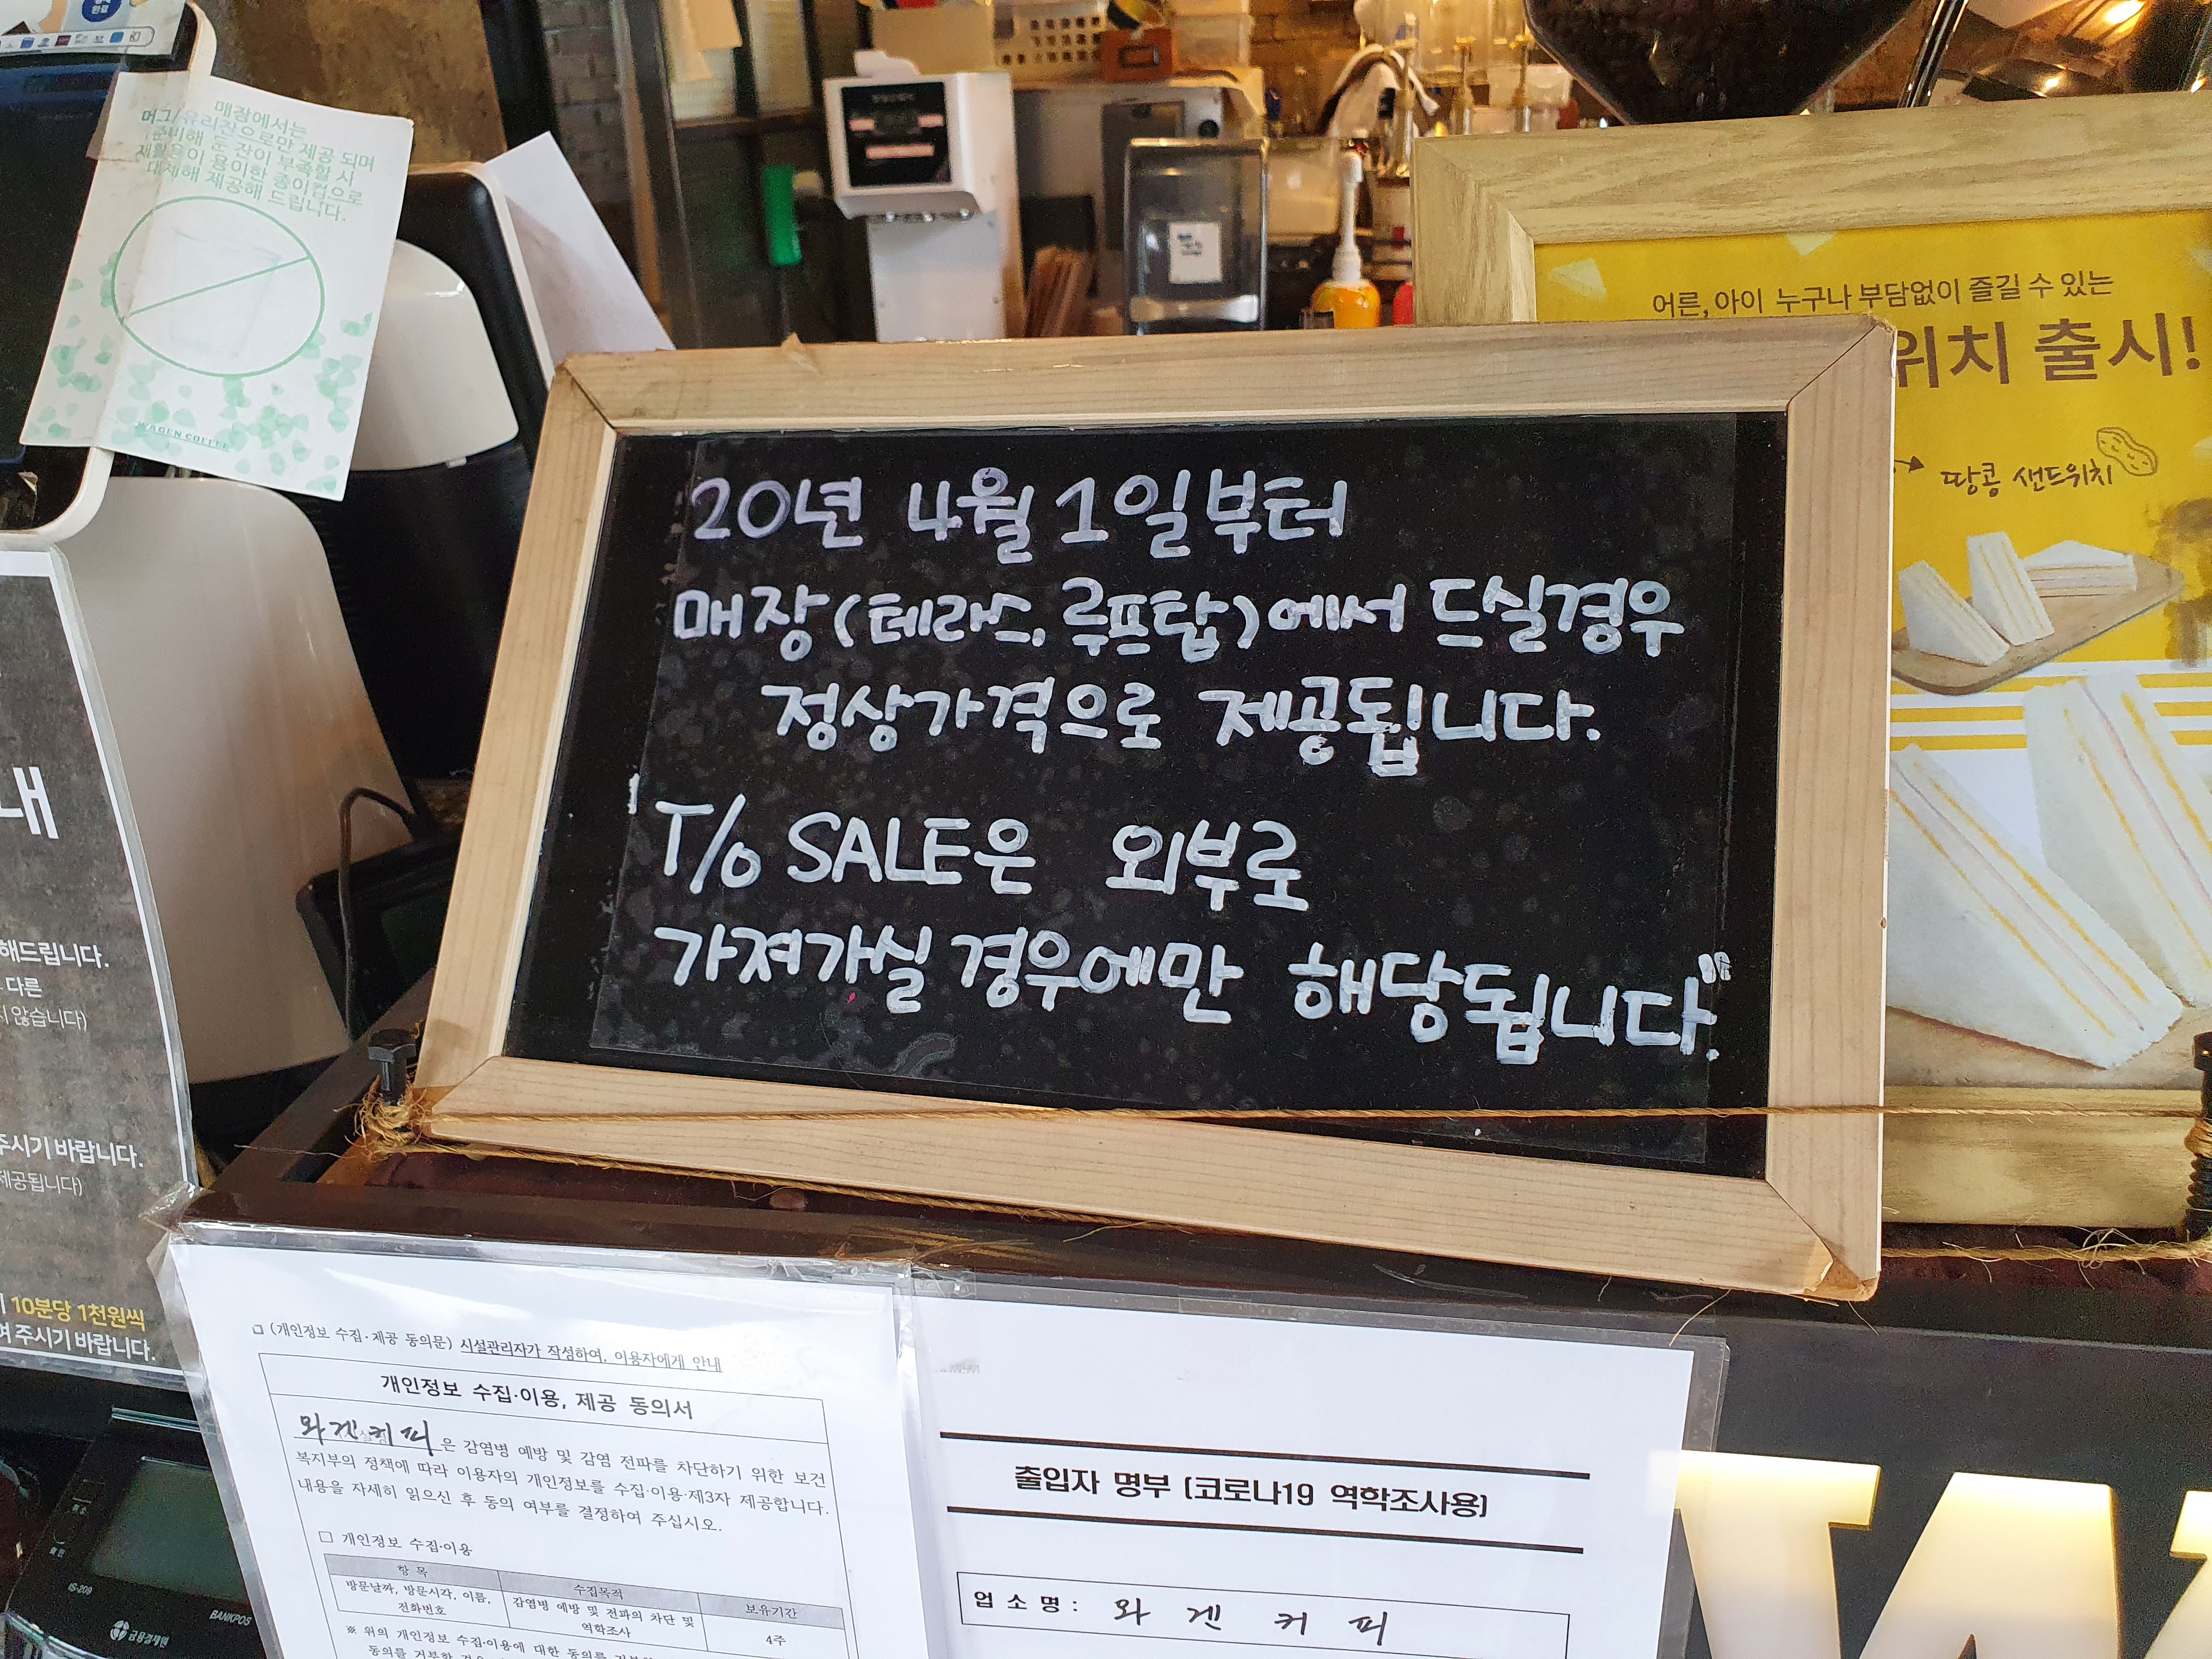 매장에서는
머그/유리잔으로만 제공 되며
준비해 둔 잔이 부족할 시
재활용이 용이한 종이컵으로
대체해 제공해 드립니다.
WAGEN COFFEE
어른, 아이 누구나 부담없이 즐길 수 있는
위치 출시!
땅콩 샌드위치
20년 4월 1일부터
매장(테라스, 루프탑)에서 드실경우
정상가격으로 제공됩니다.
"T/O SALE은 외부로
가져가실 경우에만 해당됩니다."
내
해드립니다.
다른
지 않습니다)
주시기 바랍니다.
제공됩니다)
10분당 1천원씩
여 주시기 바랍니다.
(개인정보 수집·제공 동의문) 시설관리자가 작성하여, 이용자에게 안내
개인정보 수집·이용, 제공 동의서
와겐커피은 감염병 예방 및 감염 전파를 차단하기 위한 보건
복지부의 정책에 따라 이용자의 개인정보를 수집·이용·제3자 제공합니다.
내용을 자세히 읽으신 후 동의 여부를 결정하여 주십시오.
□ 개인정보 수집·이용
항 목 수집목적 보유기간
방문날짜, 방문시각, 이름, 전화번호 감염병 예방 및 전파의 차단 및 역학조사 4주
※ 위의 개인정보 수집·이용에 대한 동의를
출입자 명부 (코로나19 역학조사용)
업 소 명 : 와 겐 커 피
IS-209
BANKPOS
금융결제원
WA